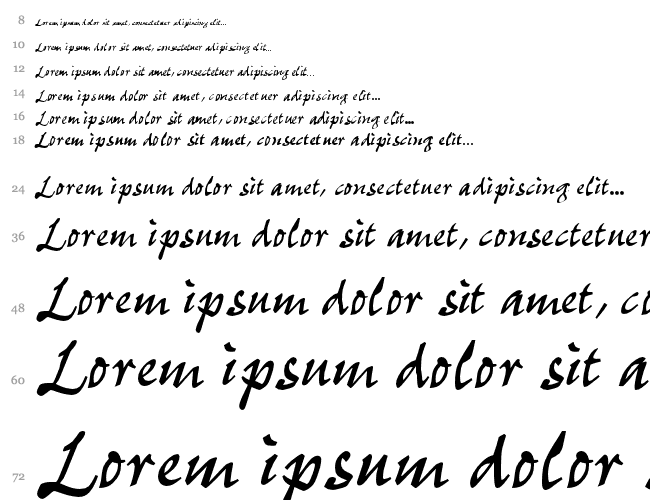 8 Lorem ipsum dolor sit amet, consectetuer adipiscing elit...
10 Lorem ipsum dolor sit amet, consectetuer adipiscing elit...
12 Lorem ipsum dolor sit amet, consectetuer adipiscing elit...
14 Lorem ipsum dolor sit amet, consectetuer adipiscing elit...
16 Lorem ipsum dolor sit amet, consectetuer adipiscing elit...
18 Lorem ipsum dolor sit amet, consectetuer adipiscing elit...
24 Lorem ipsum dolor sit amet, consectetuer adipiscing elit...
36 Lorem ipsum dolor sit amet, consectetuer
48 Lorem ipsum dolor sit amet, co
60 Lorem ipsum dolor sit a
72 Lorem ipsum dolor